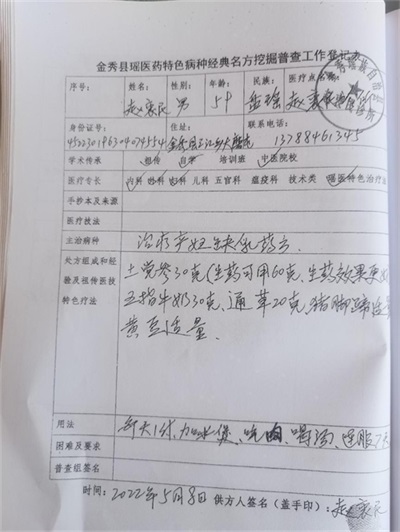 金秀县瑶医药特色病种经典名方挖掘普查工作登记表
序号： 姓名： 性别： 年龄： 民族： 医疗点名称：
男 59
身份证号： 住址： 联系电话：
13788461345
学术传承 祖传 自学 培训班 中医院校
医疗专长 内科 外科 妇科 儿科 五官科 瘟疫科 技术类 瑶医特色治疗法
手抄本及来源
医疗技法
主治病种 治疗产妇缺乳药方
处方组成和经 土党参30克（生药可用60克、生药效果更
验及祖传医技 五指牛奶30克，通草20克，猪脚蹄适量
特色疗法 黄豆适量
用法 每天1剂，加水煲、吃肉、喝汤、连服7天
困难及要求
普查组签名
时间：2022年5月8日 供方人签名（盖手印）：